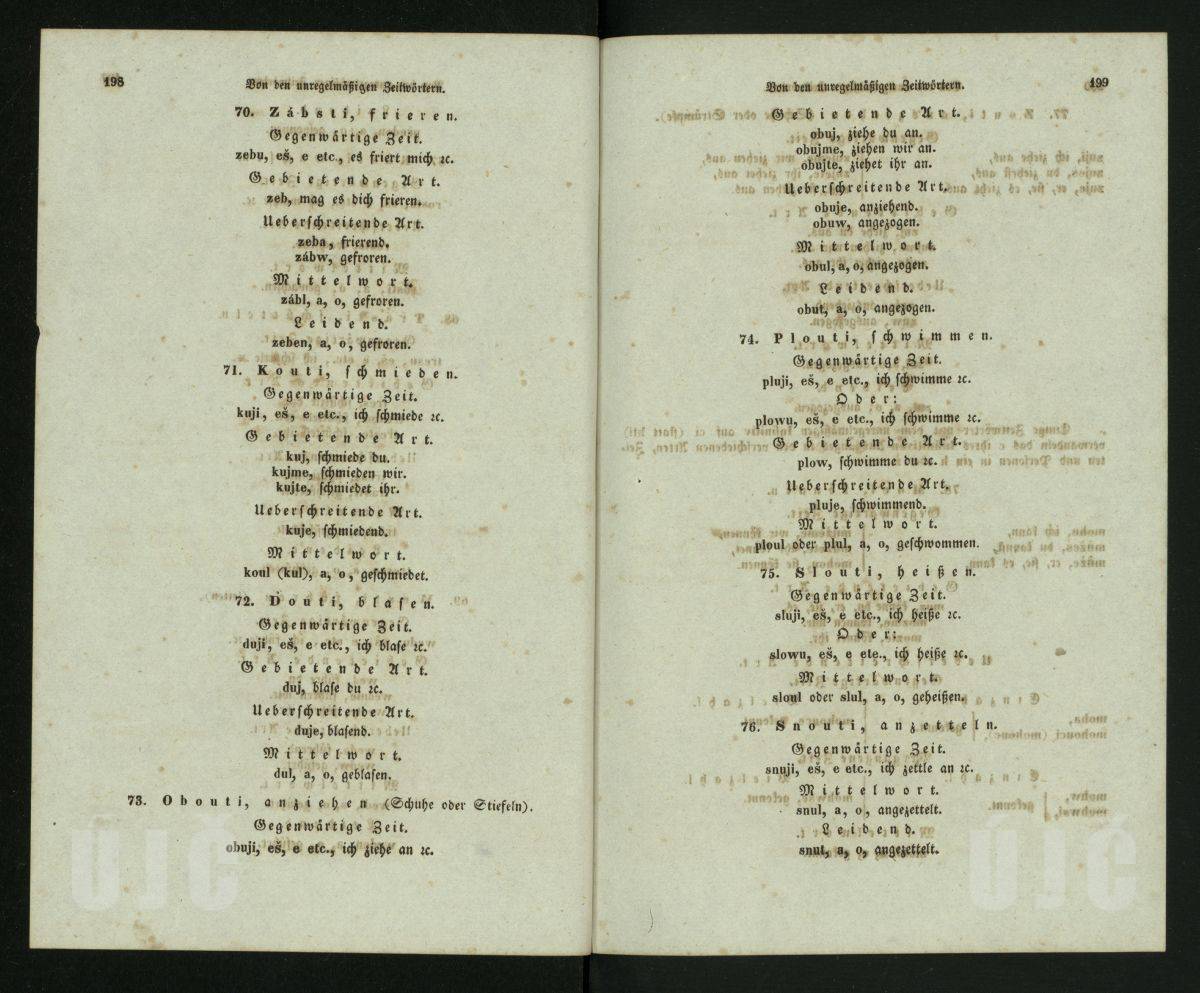 198
Von den unregelmäßigen Zeitwörtern.
70. Zábsti, frieren.
Gegenwärtige Zeit.
zebu, eš, e etc., es friert mich ꝛc.
Gebietende Art.
zeb, mag es dich frieren.
Ueberschreitende Art.
zeba, frierend.
zábw, gefroren.
Mittelwort.
zábl, a, o, gefroren.
Leidend.
zeben, a, o, gefroren.
71. Kouti, schmieden.
Gegenwärtige Zeit.
kuji, eš, e etc., ich schmiede ꝛc.
Gebietende Art.
kuj, schmiede du.
kujme, schmieden wir.
kujte, schmiedet ihr.
Ueberschreitende Art.
kuje, schmiedend.
Mittelwort.
koul (kul), a, o, geschmiedet.
72. Douti, blasen.
Gegenwärtige Zeit.
duji, eš, e etc., ich blase ꝛc.
Gebietende Art.
duj, blase du ꝛc.
Ueberschreitende Art.
duje, blasend.
Mittelwort.
dul, a, o, geblasen.
73. Obouti, anziehen (Schuhe oder Stiefeln).
Gegenwärtige Zeit.
obuji, eš, e etc., ich ziehe an ꝛc.
ÚJČ
Von den unregelmäßigen Zeitwörtern.
199
Gebietende Art.
obuj, ziehe du an.
obujme, ziehen wir an.
obujte, ziehet ihr an.
Ueberschreitende Art.
obuje, anziehend.
obuw, angezogen.
Mittelwort.
obul, a, o, angezogen.
Leidend.
obut, a, o, angezogen.
74. Plouti, schwimmen.
Gegenwärtige Zeit.
pluji, eš, e etc., ich schwimme ꝛc.
Oder:
plowu, eš, e etc., ich schwimme ꝛc.
Gebietende Art.
plow, schwimme du ꝛc.
Ueberschreitende Art.
pluje, schwimmend.
Mittelwort.
ploul oder plul, a, o, geschwommen.
75. Slouti, heißen.
Gegenwärtige Zeit.
sluji, eš, e etc., ich heiße ꝛc.
Oder:
slowu, eš, e ete., ich heiße ꝛc.
Mittelwort.
sloul oder slul, a, o, geheißen.
76. Snouti, anzetteln.
Gegenwärtige Zeit.
snuji, eš, e etc., ich zettle an ꝛc.
Mittelwort.
snul, a, o, angezettelt.
Leidend.
snut, a, o, angezettelt.
ÚJČ